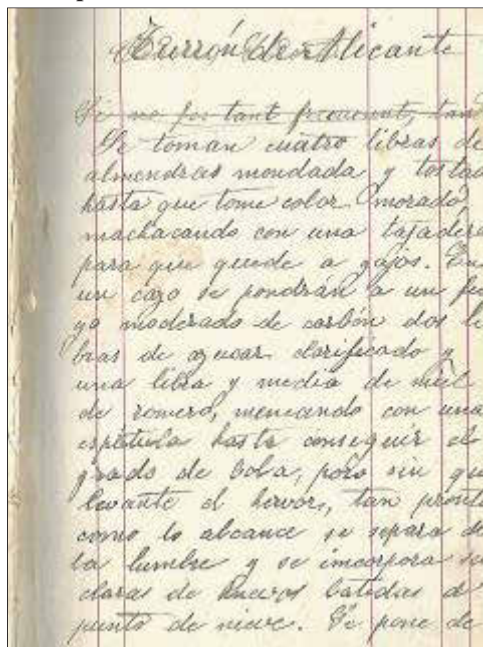 Turrón de Alicante
Si no fos tant frecuent, tan
Se toman cuatro libras de
almendras mondada y tostad
hasta que tome color morado,
machacando con una tajadera
para que quede a gajos. En
un cazo se pondrán a un fue
go moderado de carbón dos li
bras de azucar clarificado y
una libra y media de miel
de romero, meneando con una
espátula hasta conseguir el
grado de bola, pero sin que
levante el hervor, tan pronto
como lo alcance se separa de
la lumbre y se incorpora se
claras de huevos batidas a
punto de nieve. Se pone de